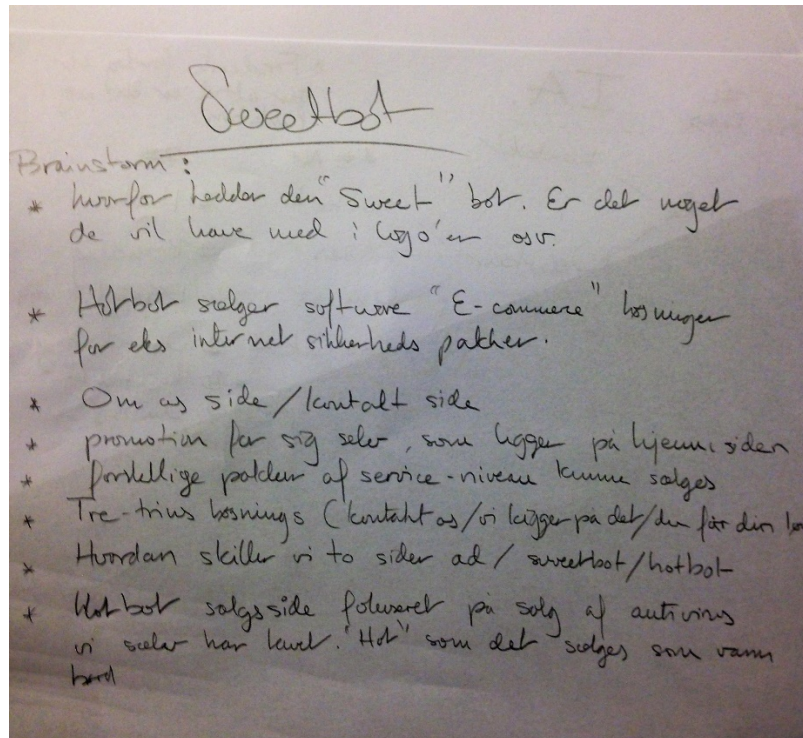 Sweetbot
Brainstorm:
* hvorfor hedder den "Sweet" bot. Er det noget
de vil have med i logo'en osv.
* Hotbot sælger software "E-commere" løsninger
for eks internet sikkerheds pakker.
* Om os side / kontakt side
* promotion for sig selv, som ligger på hjemmesiden
* forskellige pakker af service-niveau kunne sælges
* Tre-trins løsnings (kontakt os/vi kigger på det/du får din
* Hvordan skiller vi to sider ad / sweetbot/hotbot
* Hotbot salgsside fokuseret på salg af antivirus
vi selv har lavet. "Hot" som det sælges som varm
brød